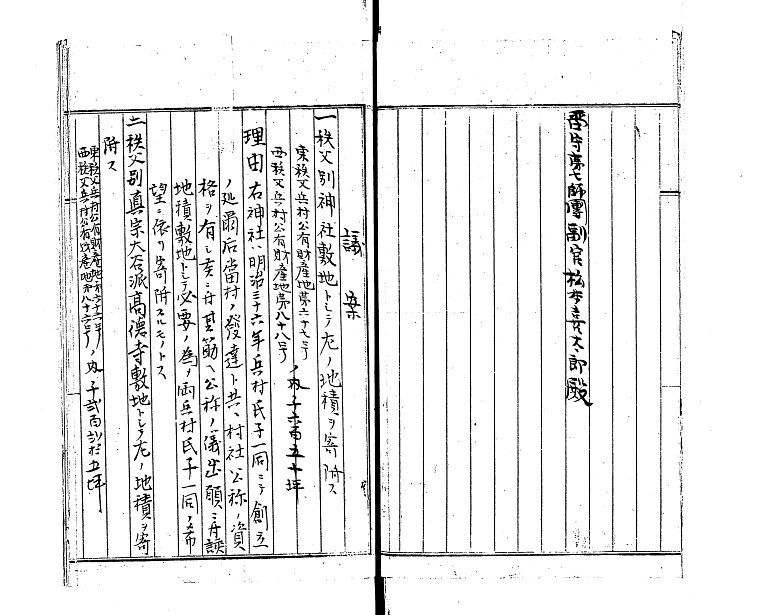 留守第七師團副官松本喜太郎殿
議案
一秩父別神社敷地トシテ左ノ地積ヲ寄附ス
東秩父兵村公有財産地第六十七号
西秩父兵村公有財産地第八十八号
ノ内千六百五十坪
理由右神社ハ明治三十六年兵村氏子一同ニテ創立
ノ処爾后當村ノ發達ト共ニ村社公称ノ資
格ヲ有シ来ニ付其筋ヘ公称ノ儀出願ニ付該
地積敷地トシテ必要ノ為メ両兵村氏子一同ノ希
望ニ依リ寄附スルモノトス
二秩父別真宗大谷派高德寺敷地トシテ左ノ地積ヲ寄
附ス
東秩父兵村公有財産地第六十二号
西秩父兵村公有財産地第八十六号
ノ内千弐百
五坪